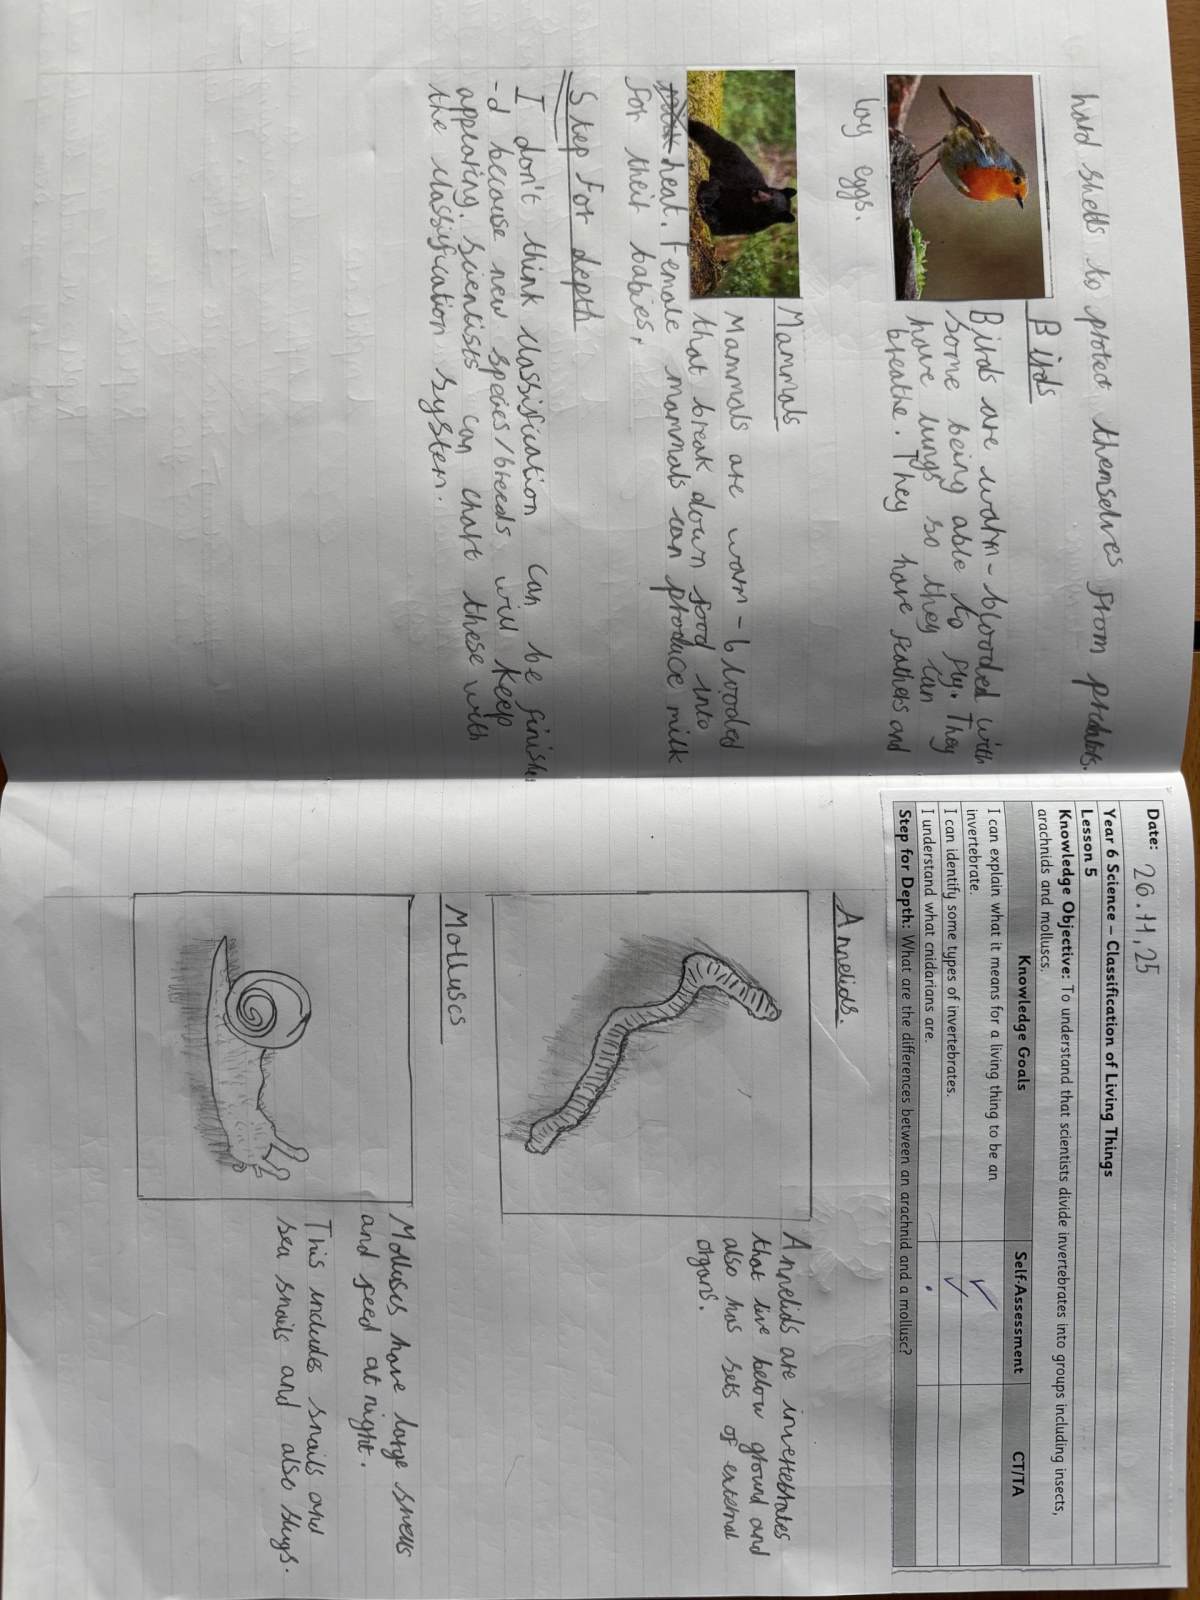 hard shells to protect themselves from predators.
Birds
Birds are warm-blooded with
some being able to fly. They
have lungs so they can
breathe. They have feathers and
lay eggs.
Mammals
Mammals are warm-blooded
that break down food into
heat. Female mammals can produce milk
for their babies.
Step For depth
I don't think classification can be finishe
-d because new species/breeds will keep
appearing. Scientists can chart these with
the classification system.
Date: 26.11.25
Year 6 Science – Classification of Living Things
Lesson 5
Knowledge Objective: To understand that scientists divide invertebrates into groups including insects,
arachnids and molluscs.
Knowledge Goals Self-Assessment CT/TA
I can explain what it means for a living thing to be an
invertebrate.
I can identify some types of invertebrates.
I understand what cnidarians are.
Step for Depth: What are the differences between an arachnid and a mollusc?
Annelids.
Annelids are invertebrates
that live below ground and
also has sets of external
organs.
Molluscs
Molluscs have large shells
and feed at night.
This includes snails and
sea snails and also slugs.